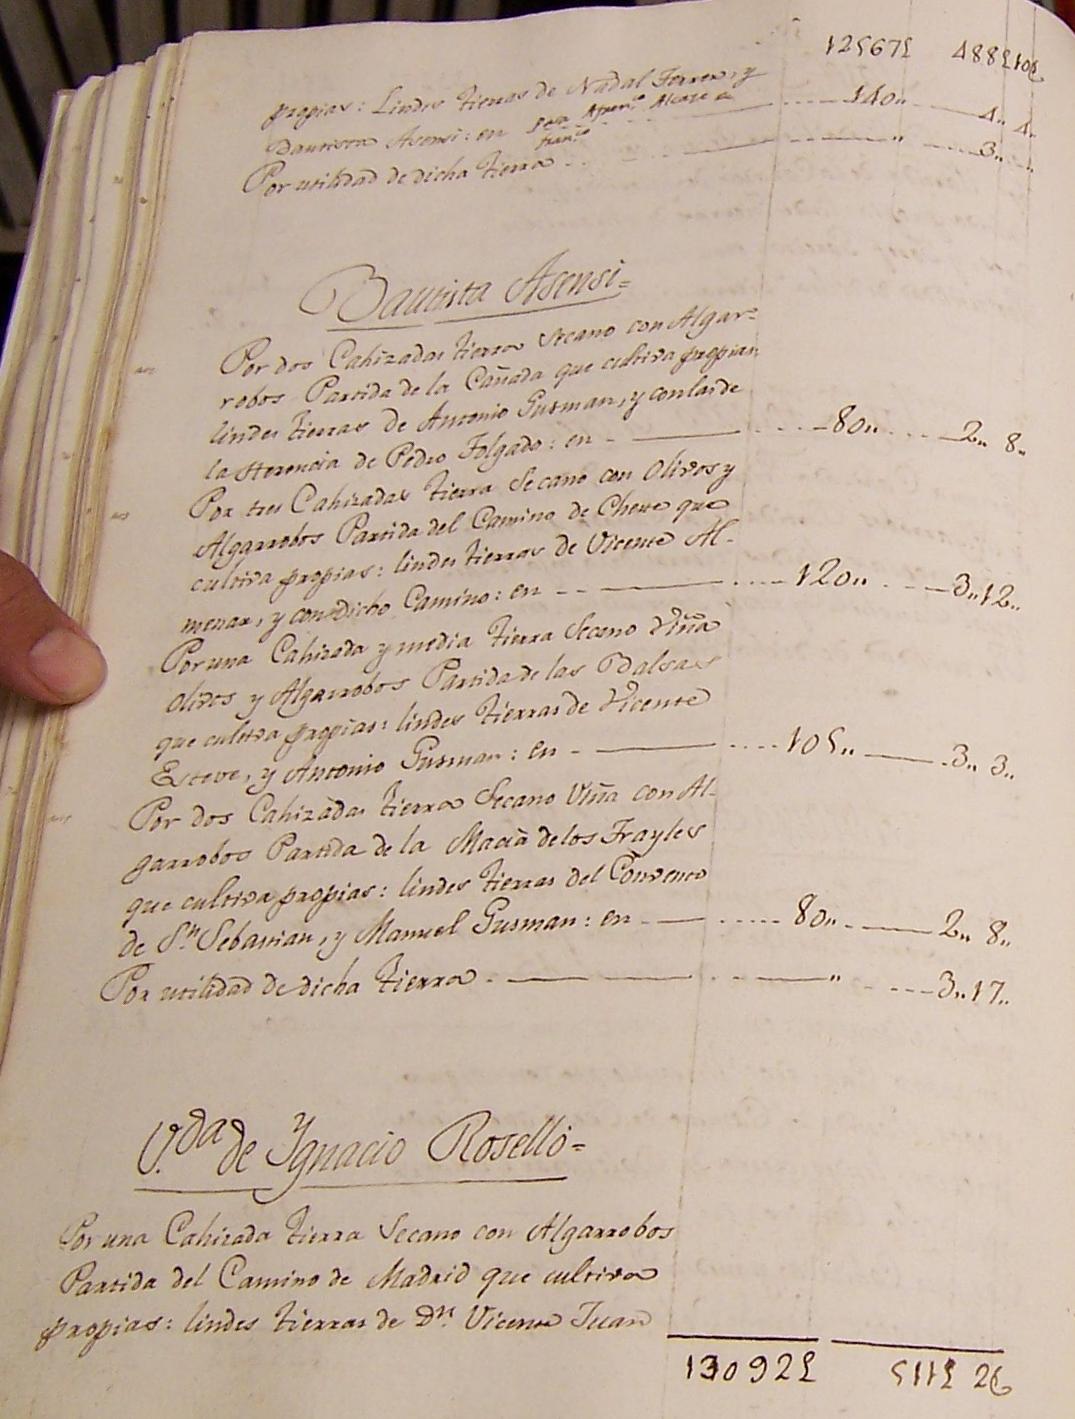 12567£ 488£10
propias: Lindes tierras de Nadal Ferrer, y
Bautista Asensi: en 140,, 4,, 4,,
Por utilidad de dicha tierra ,, 3,,
Bautista Asensi=
Por dos Cahizadas tierra Secano con Algar=
robos Partida de la Cañada que cultiva propias
lindes tierras de Antonio Gusman, y con las de
la Herencia de Pedro Folgado: en 80,, 2,, 8,,
Por tres Cahizadas tierra Secano con Olivos y
Algarrobos Partida del Camino de Cheste que
cultiva propias: lindes tierras de Vicente Al-
menar, y con dicho Camino: en 120,, 3,,12,,
Por una Cahizada y media tierra Secano Viña
olivos y Algarrobos Partida de las Balsas
que cultiva propias: lindes tierras de Vicente
Esteve, y Antonio Gusman: en 105,, 3,, 3,,
Por dos Cahizadas tierra Secano Viña con Al-
garrobos Partida de la Macià de los Frayles
que cultiva propias: lindes tierras del Convento
de Sn. Sebastian, y Manuel Gusman: en 80,, 2,, 8,,
Por utilidad de dicha tierra ,, 3,,17,,
V.da de Ygnacio Roselló=
Por una Cahizada tierra Secano con Algarrobos
Partida del Camino de Madrid que cultiva
propias: lindes tierras de Dn. Vicente Juan
13092£ 511£